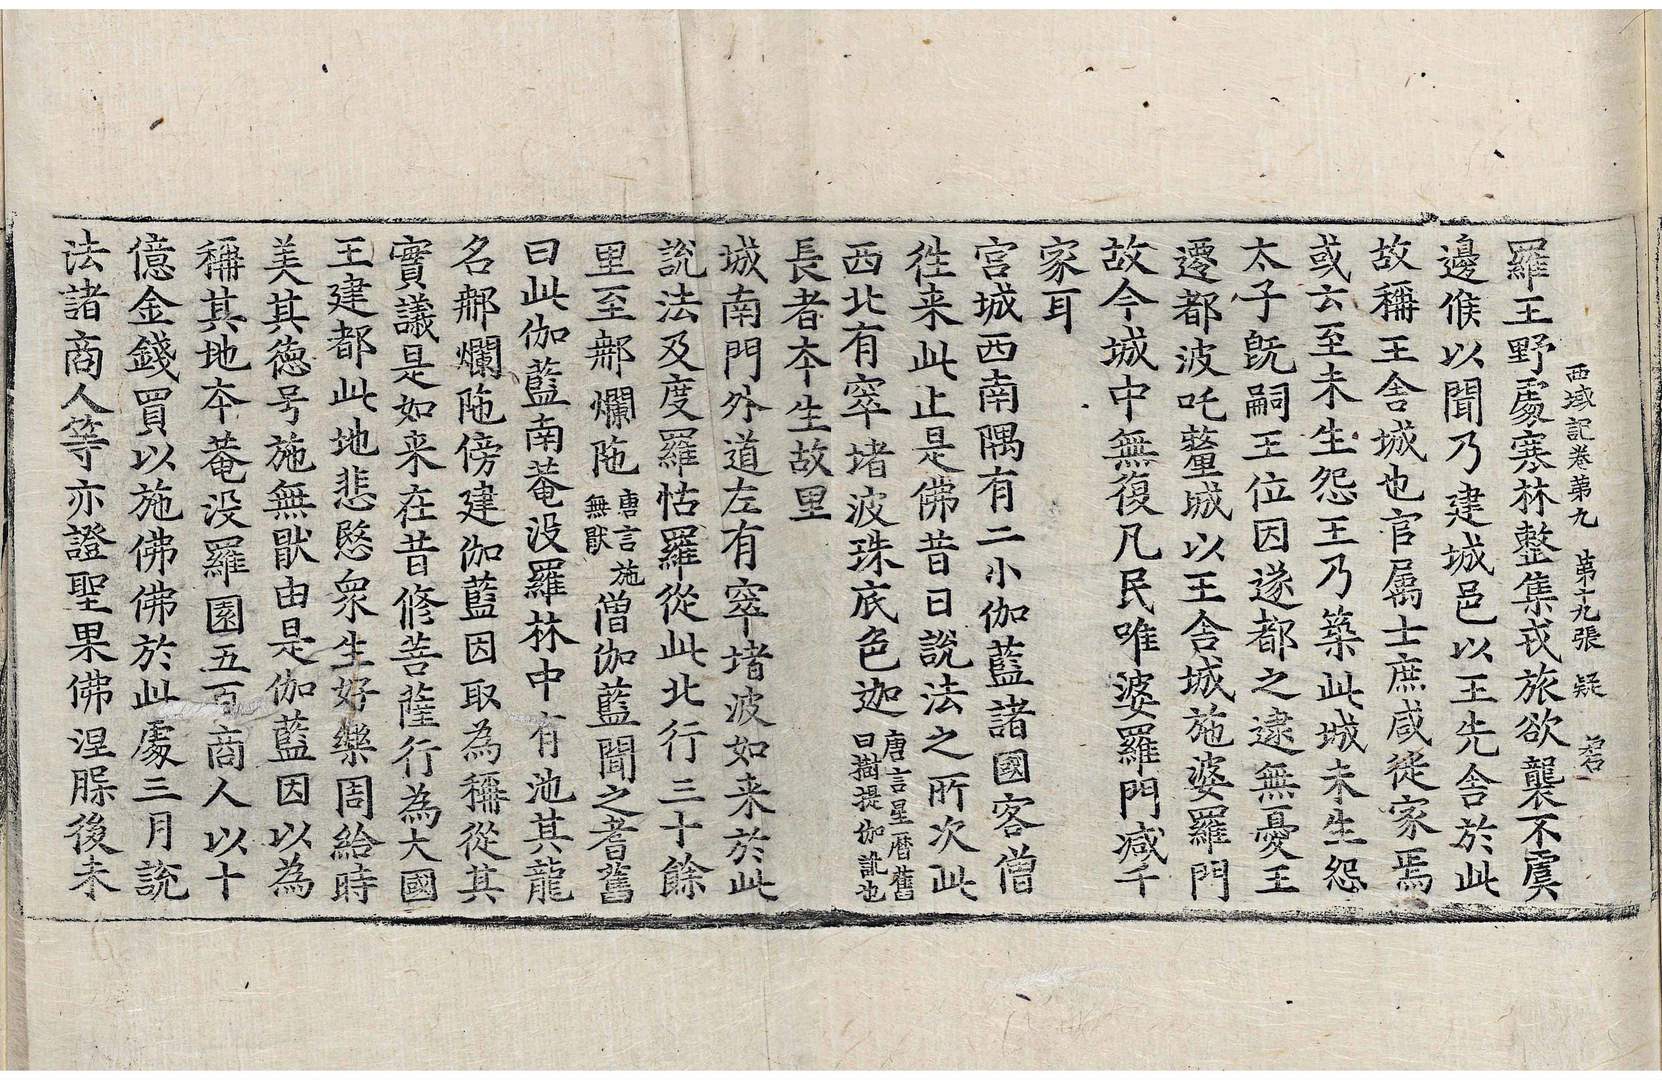 西域記卷第九　第十九張　疑
羅王野處寒林整集戎旅欲襲不虞
邊候以聞乃建城邑以王先舍於此
故稱王舍城也官屬士庶咸徙家焉
或云至未生怨王乃築此城未生怨
太子旣嗣王位因遂都之逮無憂王
遷都波吒釐城以王舍城施婆羅門
故今城中無復凡民唯婆羅門减千
家耳
宮城西南隅有二小伽藍諸國客僧
徃来此止是佛昔日說法之所次此
西北有窣堵波珠底色迦唐言星曆舊曰樹提伽訛也
長者夲生故里
城南門外道左有窣堵波如来於此
說法及度羅怙羅從此北行三十餘
里至那爛陁唐言施無猒僧伽藍聞之耆舊
曰此伽藍南菴没羅林中有池其龍
名那爛陁傍建伽藍因取為稱從其
實議是如来在昔修菩薩行為大國
王建都此地悲愍衆生好樂周給時
美其德号施無猒由是伽藍因以為
稱其地夲菴没羅園五百商人以十
億金錢買以施佛佛於此處三月說
法諸商人等亦證聖果佛涅槃後未